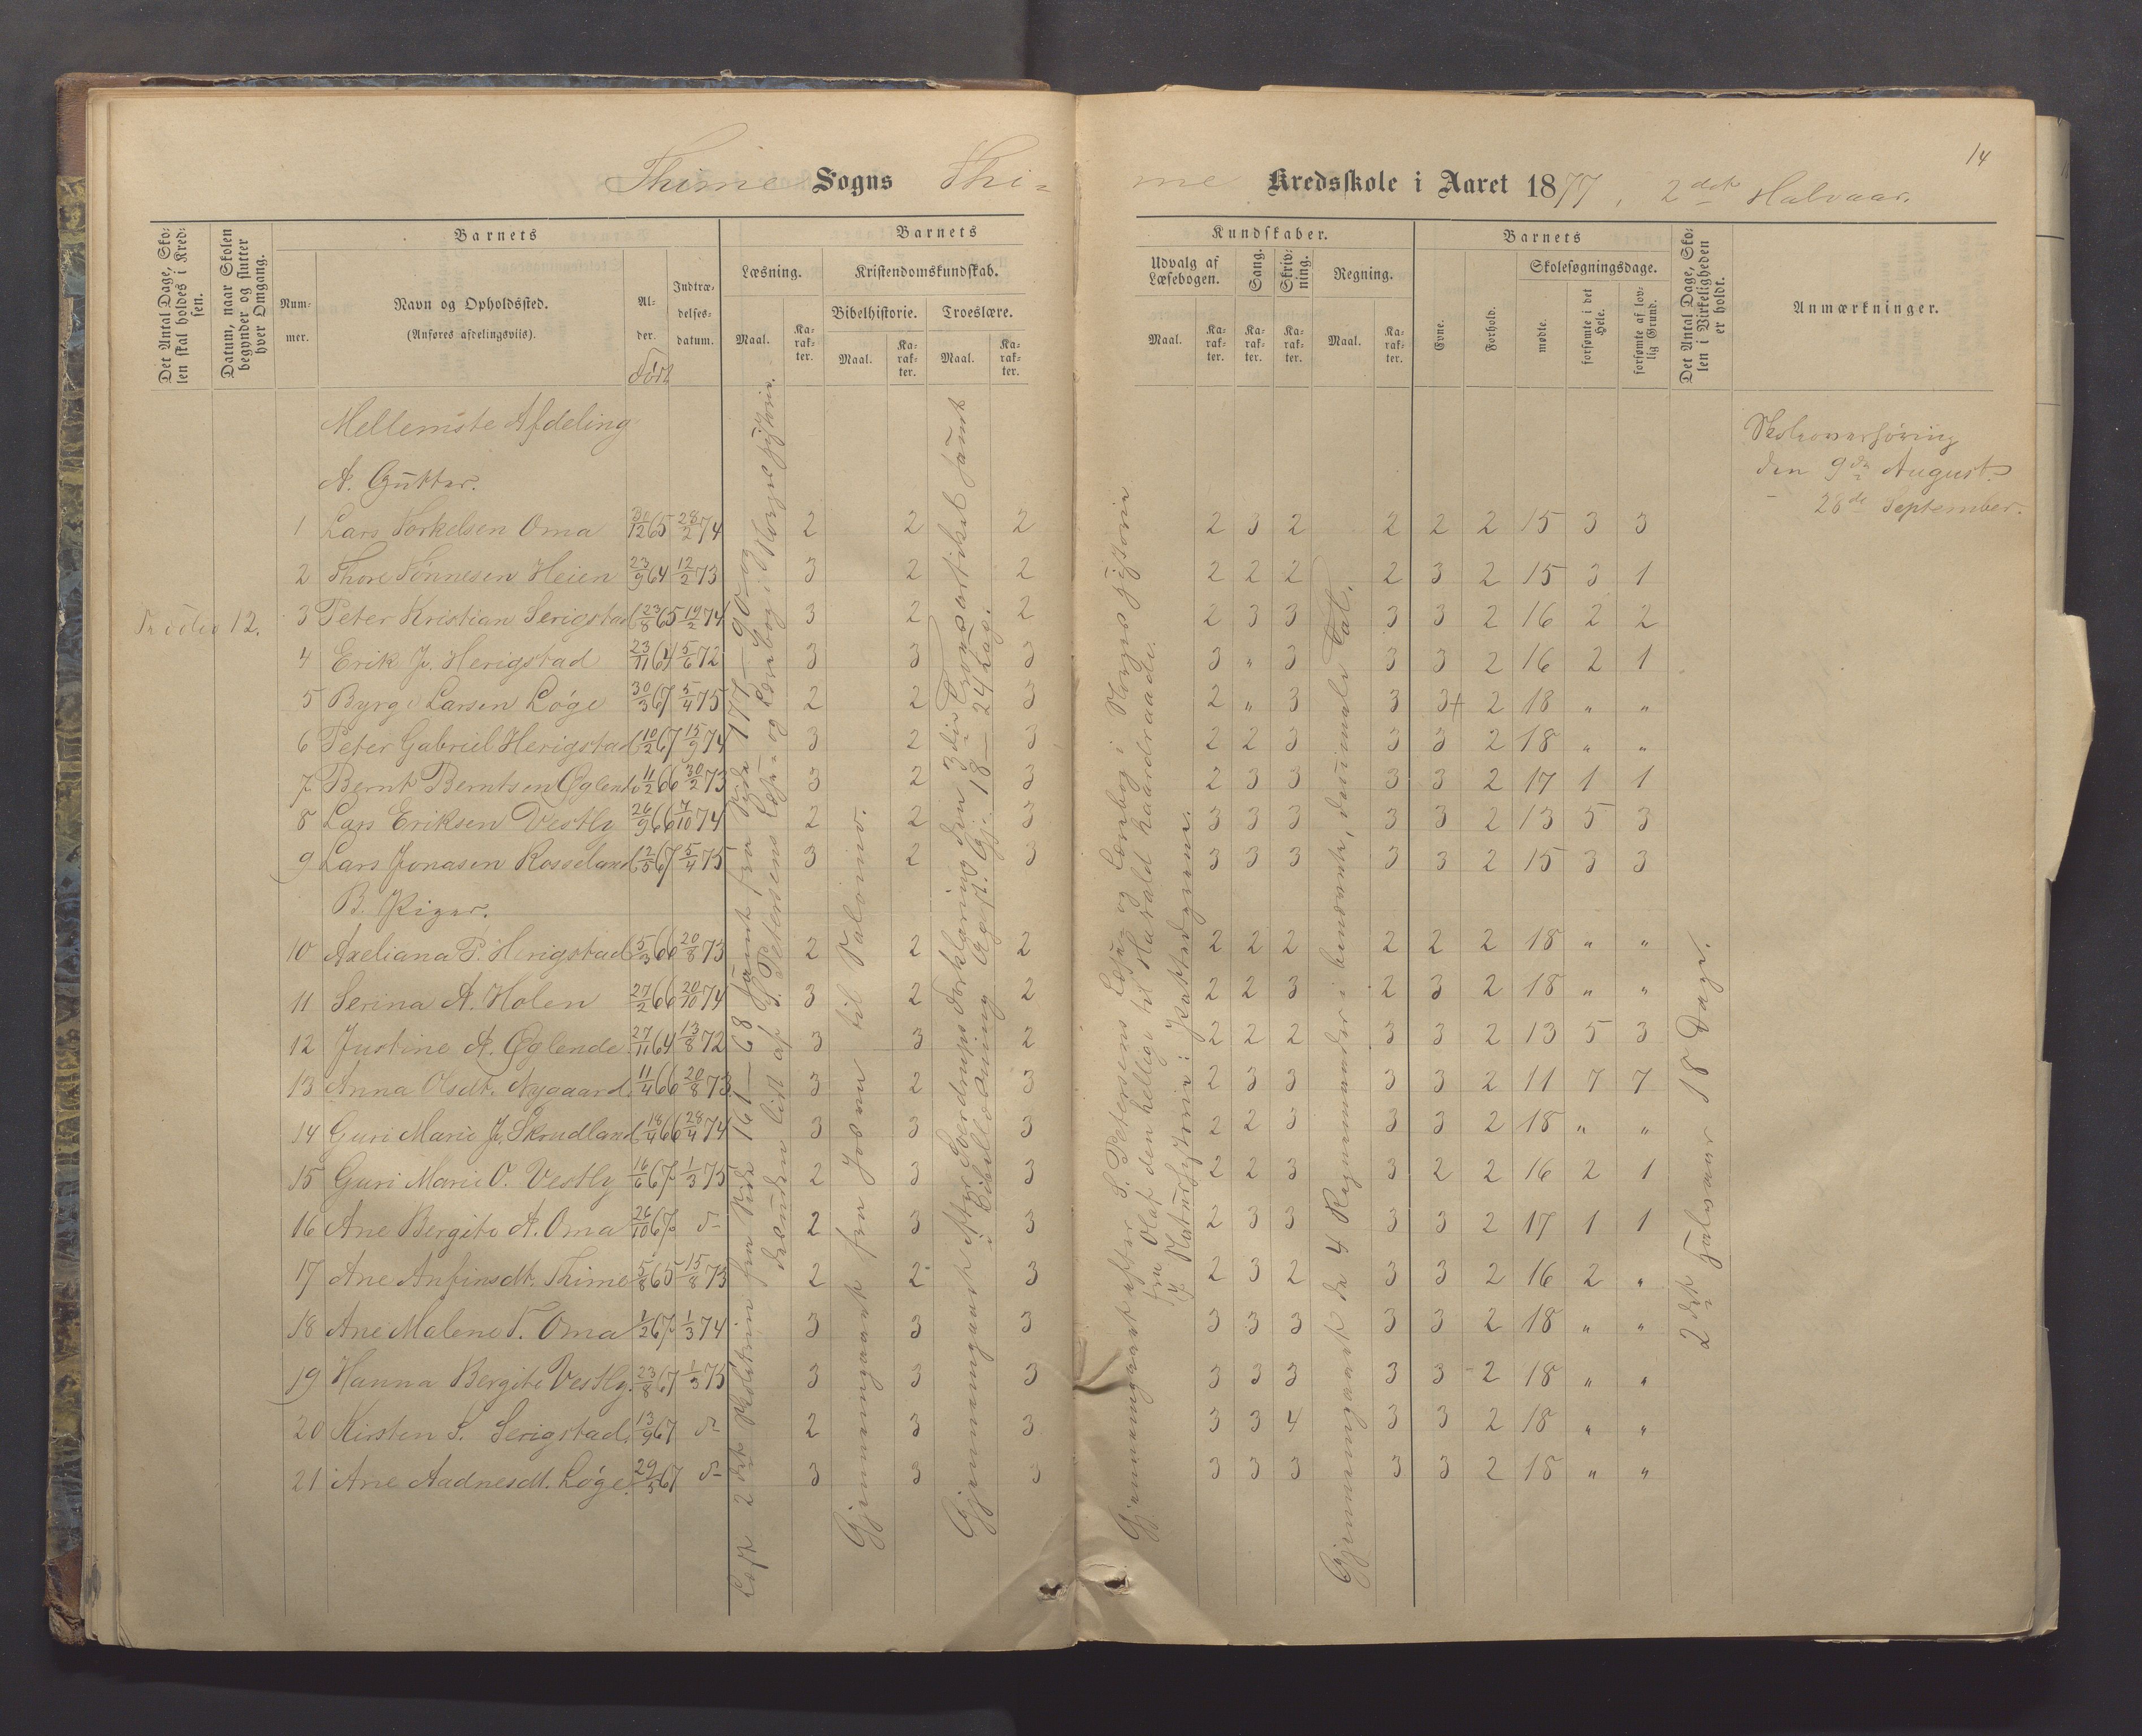 14
Thime Sogns Thi-
me Kredsskole i Aaret 1877, 2det Halvaar.
Det Antal Dage, Sko-
len skal holdes i Kred-
sen.
Datum, naar Skolen
begynder og slutter
hver Omgang.
Barnets
Num-
mer.
Navn og Opholdssted.
(Anføres afdelingsviis).
Al-
der.
Født
Indtræ-
delses-
datum.
Barnets
Læsning.
Maal.
Ka-
rak-
ter.
Kristendomskundskab.
Bibelhistorie.
Maal.
Ka-
rak-
ter.
Troeslære.
Maal.
Ka-
rak-
ter.
Kundskaber.
Udvalg af
Læsebogen.
Maal.
Ka-
rak-
ter.
Sang.
Ka-
rak-
ter.
Skriv-
ning.
Ka-
rak-
ter.
Regning.
Maal.
Ka-
rak-
ter.
Barnets
Evne.
Forhold.
Skolesøgningsdage.
mødte.
forsømte i det
Hele.
forsømte af lov-
lig Grund.
Det Antal Dage, Sko-
len i Virkeligheden
er holdt.
Anmærkninger.
Mellemste Afdeling
A. Gutter.
1 Lars Torkelsen Oma 31/12 65 28/2 74 2 2 2 2 3 2 2 2 2 15 3 3
2 Thore Tønnesen Heien 23/9 64 12/2 73 3 2 2 2 2 2 2 3 2 15 3 1
12. 3 Peter Kristian Serigstad 23/8 65 19/2 74 3 2 2 2 3 3 3 3 2 16 2 2
4 Erik J. Herigstad 23/11 64 5/6 72 3 3 3 3 " 3 3 3 2 16 2 1
5 Byrge Larsen Løge 30/3 67 5/4 75 2 2 3 2 " 3 3 3+ 2 18 " "
6 Peter Gabriel Herigstad 10/2 67 15/9 74 3 2 3 2 2 3 3 3 2 18 " "
7 Bernt Berntsen Øglend 11/2 66 30/2 73 3 2 3 2 3 3 3 3 2 17 1 1
8 Lars Eriksen Vestly 26/9 66 7/10 74 2 2 3 3 3 3 3 3 2 13 5 3
9 Lars Jonasen Rosseland 2/5 67 5/4 75 3 2 3 3 3 3 3 3 2 15 3 3
B. Piger.
10 Axeliana P. Herigstad 5/3 66 20/8 73 2 2 2 2 2 2 2 2 2 18 " "
11 Serina A. Holen 27/2 66 20/10 74 3 2 2 2 2 3 2 3 2 18 " "
12 Justine A. Øglende 27/11 64 13/8 72 3 3 2 2 2 2 3 3 2 13 5 3
13 Anna Olsdt. Nygaard 11/4 66 20/8 73 3 2 3 2 3 3 3 3 2 11 7 7
14 Guri Marie J. Skrudland 18/4 66 28/4 74 3 3 3 2 2 3 3 3 2 18 " "
15 Guri Marie O. Vestly 16/6 67 1/3 75 2 3 3 2 2 3 3 2 2 16 2 1
16 Ane Bergite A. Oma 26/10 67 d- 2 3 3 2 3 3 3 3 2 17 1 1
17 Ane Anfinsdt. Thime 5/8 65 15/8 73 2 2 3 2 3 2 3 3 2 16 2 "
18 Ane Malene T. Oma 1/2 67 1/3 74 3 3 3 3 3 3 3 3 2 18 " "
19 Hanna Bergite Vestly. 23/8 67 1/3 75 3 3 3 3 3 3 3 3 2 18 " "
20 Kirsten S. Serigstad. 13/9 67 d- 2 3 3 3 3 4 3 3 2 18 " "
21 Ane Aadnesdt. Løge. 29/3 67 d- 3 3 3 3 3 3 3 3 2 18 " "
Læst 2det Skoletrin fra Side 161-68 samt fra Side 177-90 og
desuden lidt af S. Petersens Læse- og Lærebog i Norges Historie.
Gjennemgaaet fra Josva til Salomo.
Gjennemgaaet efter Sverdrups Forklaring den 3die Troesartikel samt
i Bibellæsning Apgst. Gj. 18-24 Kap.
Gjennemgaaet efter S. Petersens Læse- og Lærebog i Norges Historie
fra Olaf den hellige til Harald Haardraade.
Naturhistorie: Pattedyrene.
Gjennemgaaet de 4 Regningsarter i benævnte, decimale Tal.
2det Halvaar 18 Dage.
Skoleoverhøring
den 9de August.
- 28de September.